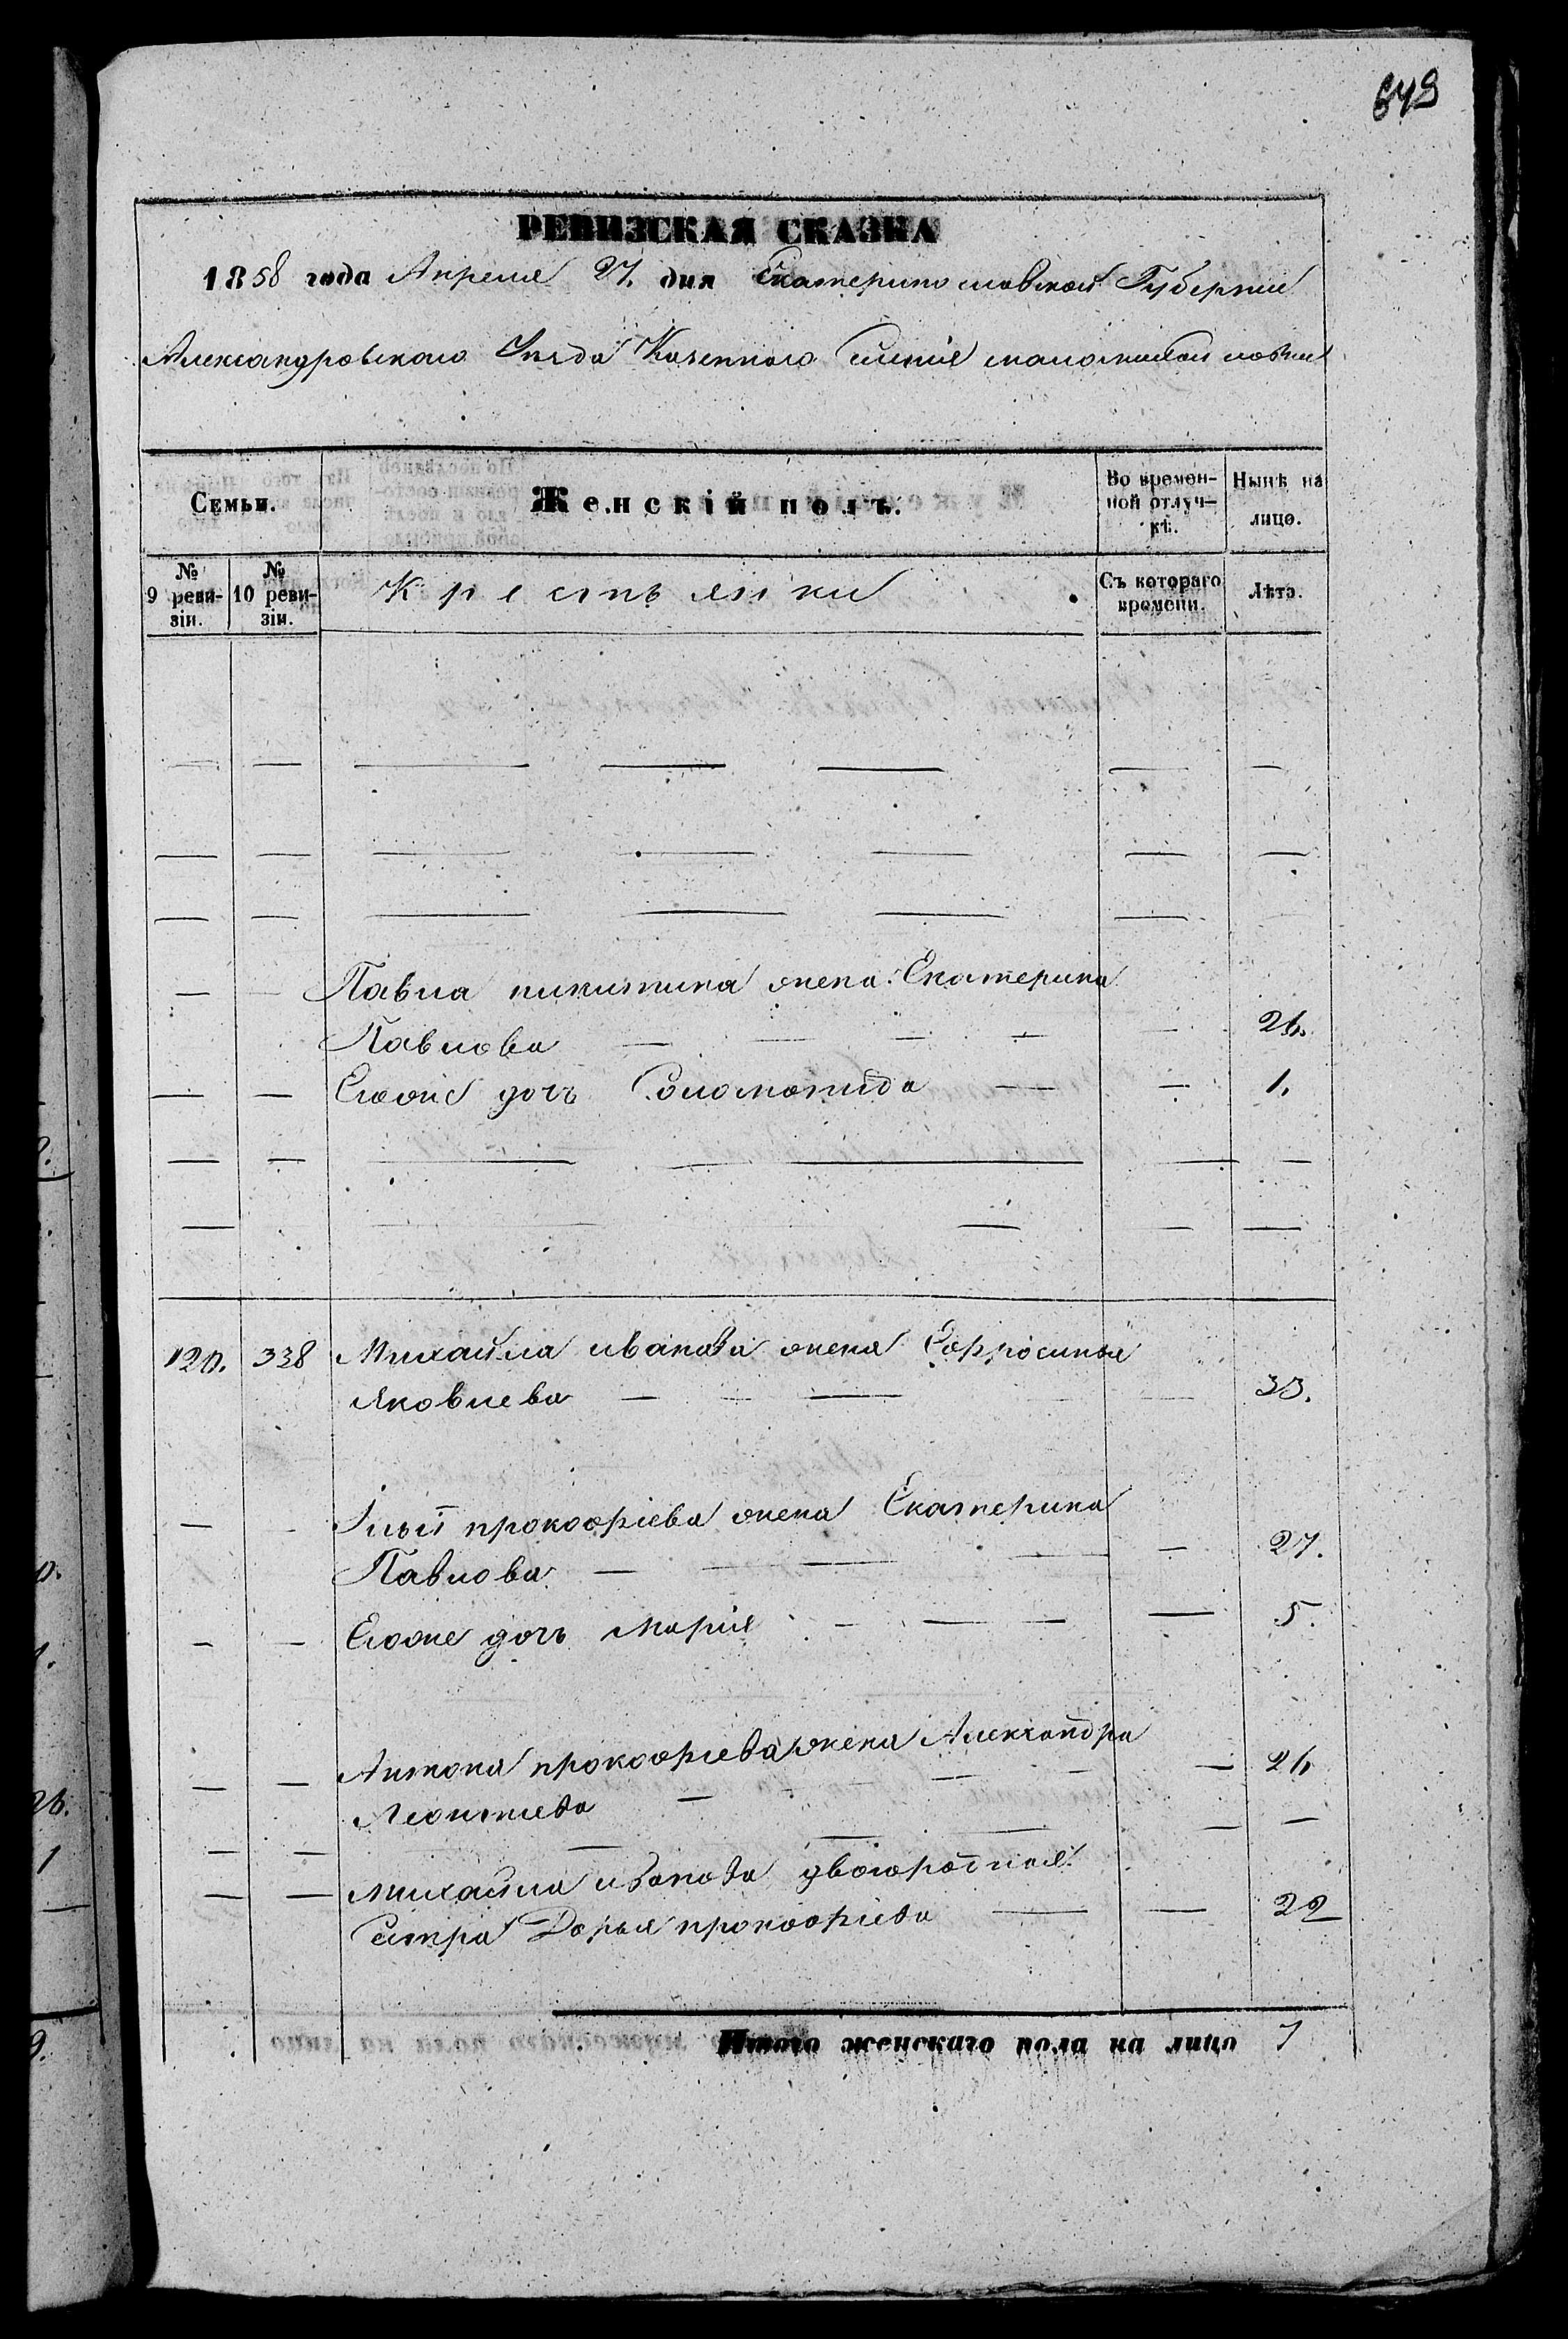 649
РЕВИЗСКАЯ СКАЗКА
1858 года Апреля 27 дня Екатеринославской Губернии
Александровского Уезда Казенного Селенія
Семьи. Женскій полъ. Во времен-ной отлуч-кѣ. Нынѣ на лицо.
№ 9 реви-зіи. № 10 реви-зіи. Крестьянки Съ котораго времени. Лѣта.
Павла никитина жена Екатерина
Павлова — — — — — 26.
— — Егоже дочь Соломонида — — 1.
120. 338 Михайла иванова жена Ефросинья
Яковлева — — — — 33.
— - Ильи прокофіева жена Екатерина
Павлова — — — — 27.
— — Егоже дочь Марія - — — — 5.
— — Антона прокофіева жена Александра — 26
Леонтиева —
— — Михайла иванова двоюродная
Сестра Дарья прокофіева — — 22
Итого женскаго пола на лицо 7